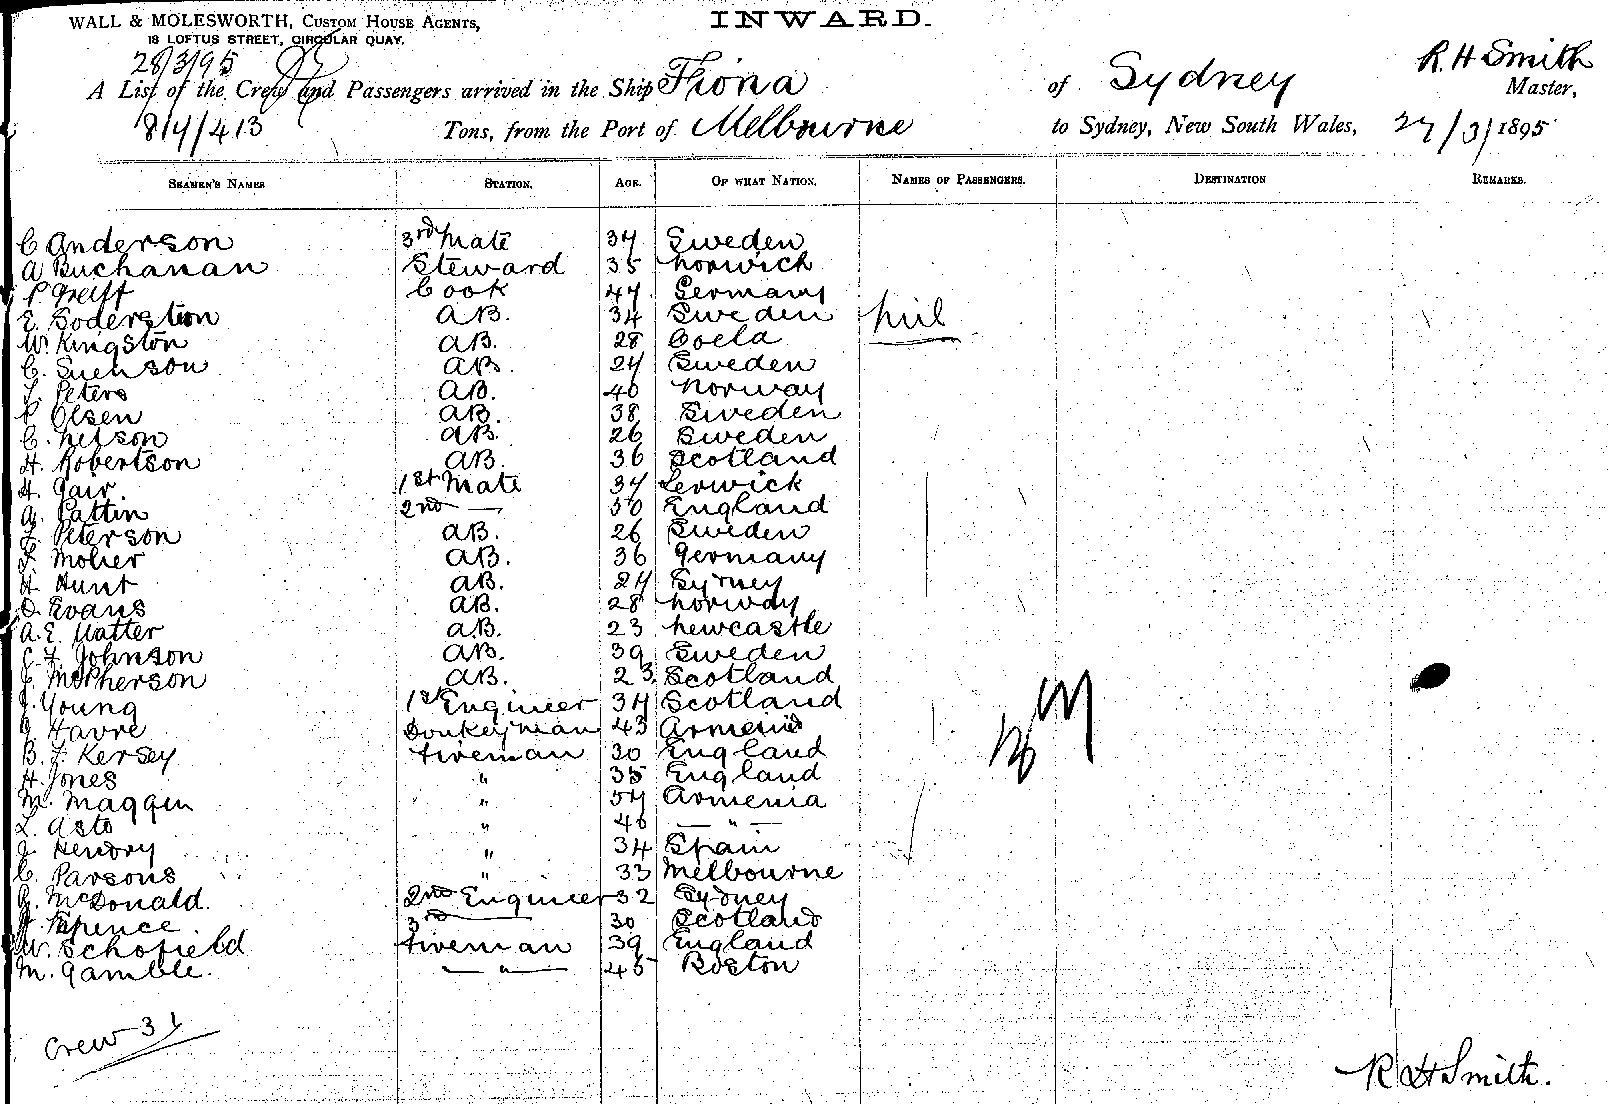 WALL & MOLESWORTH, CUSTOM HOUSE AGENTS,
18 LOFTUS STREET, CIRCULAR QUAY.
INWARD.
28/3/95
R. H Smith
A List of the Crew and Passengers arrived in the Ship Fiona of Sydney Master,
Tons, from the Port of Melbourne to Sydney, New South Wales, 27/3/1895
SEAMEN'S NAMES STATION. AGE. OF WHAT NATION. NAMES OF PASSENGERS. DESTINATION REMARKS.
C Anderson 3rd Mate 37 Sweden
A Buchanan Steward 35 Norwich
P Greiff Cook 47 Germany
E. Soderstron AB. 34 Sweden nil
W. Kingston AB. 28 Coela
C. Suenson AB. 24 Sweden
Peters AB. 40 Norway
P Olsen AB. 38 Sweden
C. Nelson AB. 26 Sweden
H. Robertson AB. 36 Scotland
H. Gair. 1st Mate 37 Lerwick
A. Pattin 2nd — 50 England
Peterson AB. 26 Sweden
Molier AB. 36 Germany
H Hunt AB. 24 Sydney
O. Evans AB. 28 Norway
A. E. Matter AB. 23 Newcastle
Johnson AB. 39 Sweden
J. McPherson AB. 23 Scotland
J. Young 1st Engineer 34 Scotland
J. Havre Donkeyman 43 Armenia
B. F. Kersey fireman 30 England
H. Jones " 35 England
M. Maggin " 54 Armenia
L. Asto " 40 — " —
J. Hendry " 34 Spain
C. Parsons " 33 Melbourne
McDonald. 2nd Engineer 32 Sydney
J. Spence. 3rd — 30 Scotland
W. Schofield fireman 39 England
M. Gamble. — " — 45 Boston
Crew 31
R H Smith.